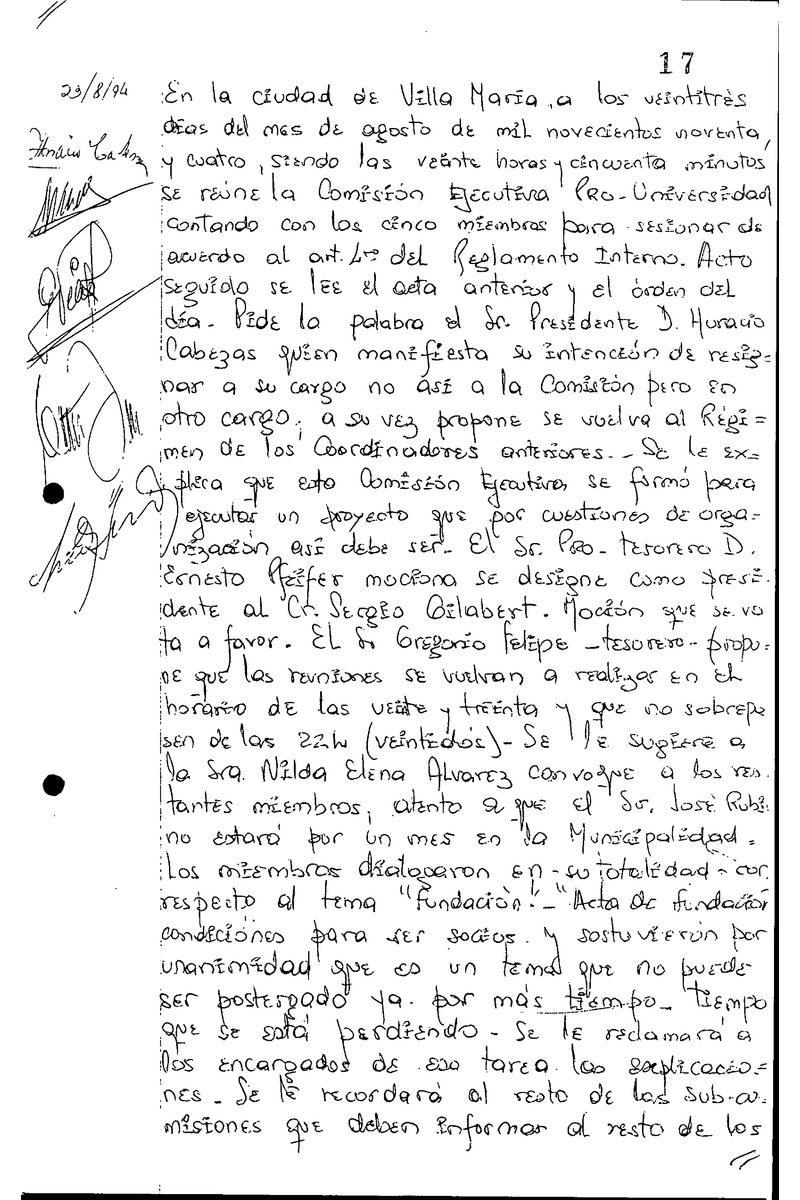 17
23/8/94
En la ciudad de Villa María, a los veintitrés
días del mes de agosto de mil novecientos noventa
y cuatro, siendo las veinte horas y cincuenta minutos
se reúne la Comisión Ejecutiva Pro-Universidad
contando con los cinco miembros para sesionar de
acuerdo al art. 4to del Reglamento Interno. Acto
seguido se lee el acta anterior y el órden del
día. Pide la palabra el Sr. Presidente D. Horacio
Cabezas quien manifiesta su intención de resig=
nar a su cargo no así a la Comisión pero en
otro cargo, a su vez propone se vuelva al Régi=
men de los Coordinadores anteriores._ Se le ex=
plica que esta Comisión Ejecutiva se formó para
ejecutar un proyecto que por cuestiones de orga=
nización así debe ser._ El Sr. Pro-tesorero D.
Ernesto Pfeifer mociona se designe como presi-
dente al Cr. Sergio Gilabert. Moción que se vo
ta a favor. El Sr Gregorio Felipe _tesorero_ propo=
ne que las reuniones se vuelvan a realizar en el
horario de las veite y treinta y que no sobrepa
sen de las 22h (veintidós)- Se le sugiere a
la Sra. Nilda Elena Alvarez convoque a los res-
tantes miembros, atento a que el Sr. José Rubi-
no estará por un mes en la Municipalidad.
Los miembros dialogaron en su totalidad - con
respecto al tema "Fundación"._ "Acta de fundación
condiciones para ser socios. y sostuvieron por
unanimidad que es un tema que no puede
ser postergado ya por más tiempo_ tiempo
que se está perdiendo - Se le reclamará a
los encargados de esa tarea las explicacio=
nes - Se le recordará al resto de las Sub-co-
misiones que deben informar al resto de los